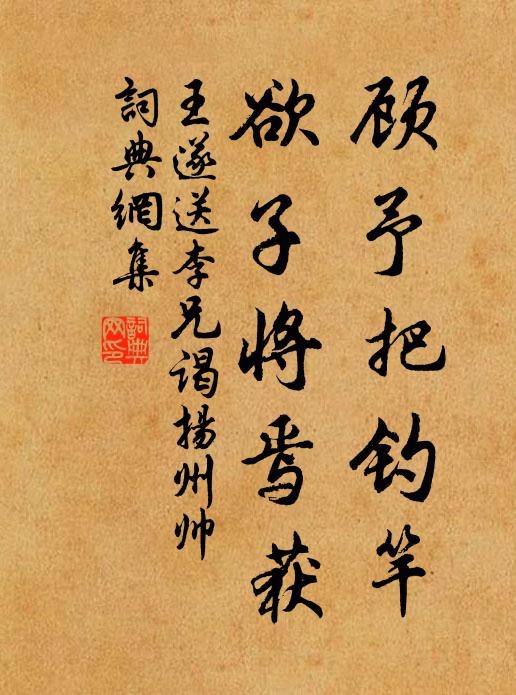 顾予把钓竿
欲子将焉获
王遂送李兄谒揚州帅
詞典網集
詞典
网印